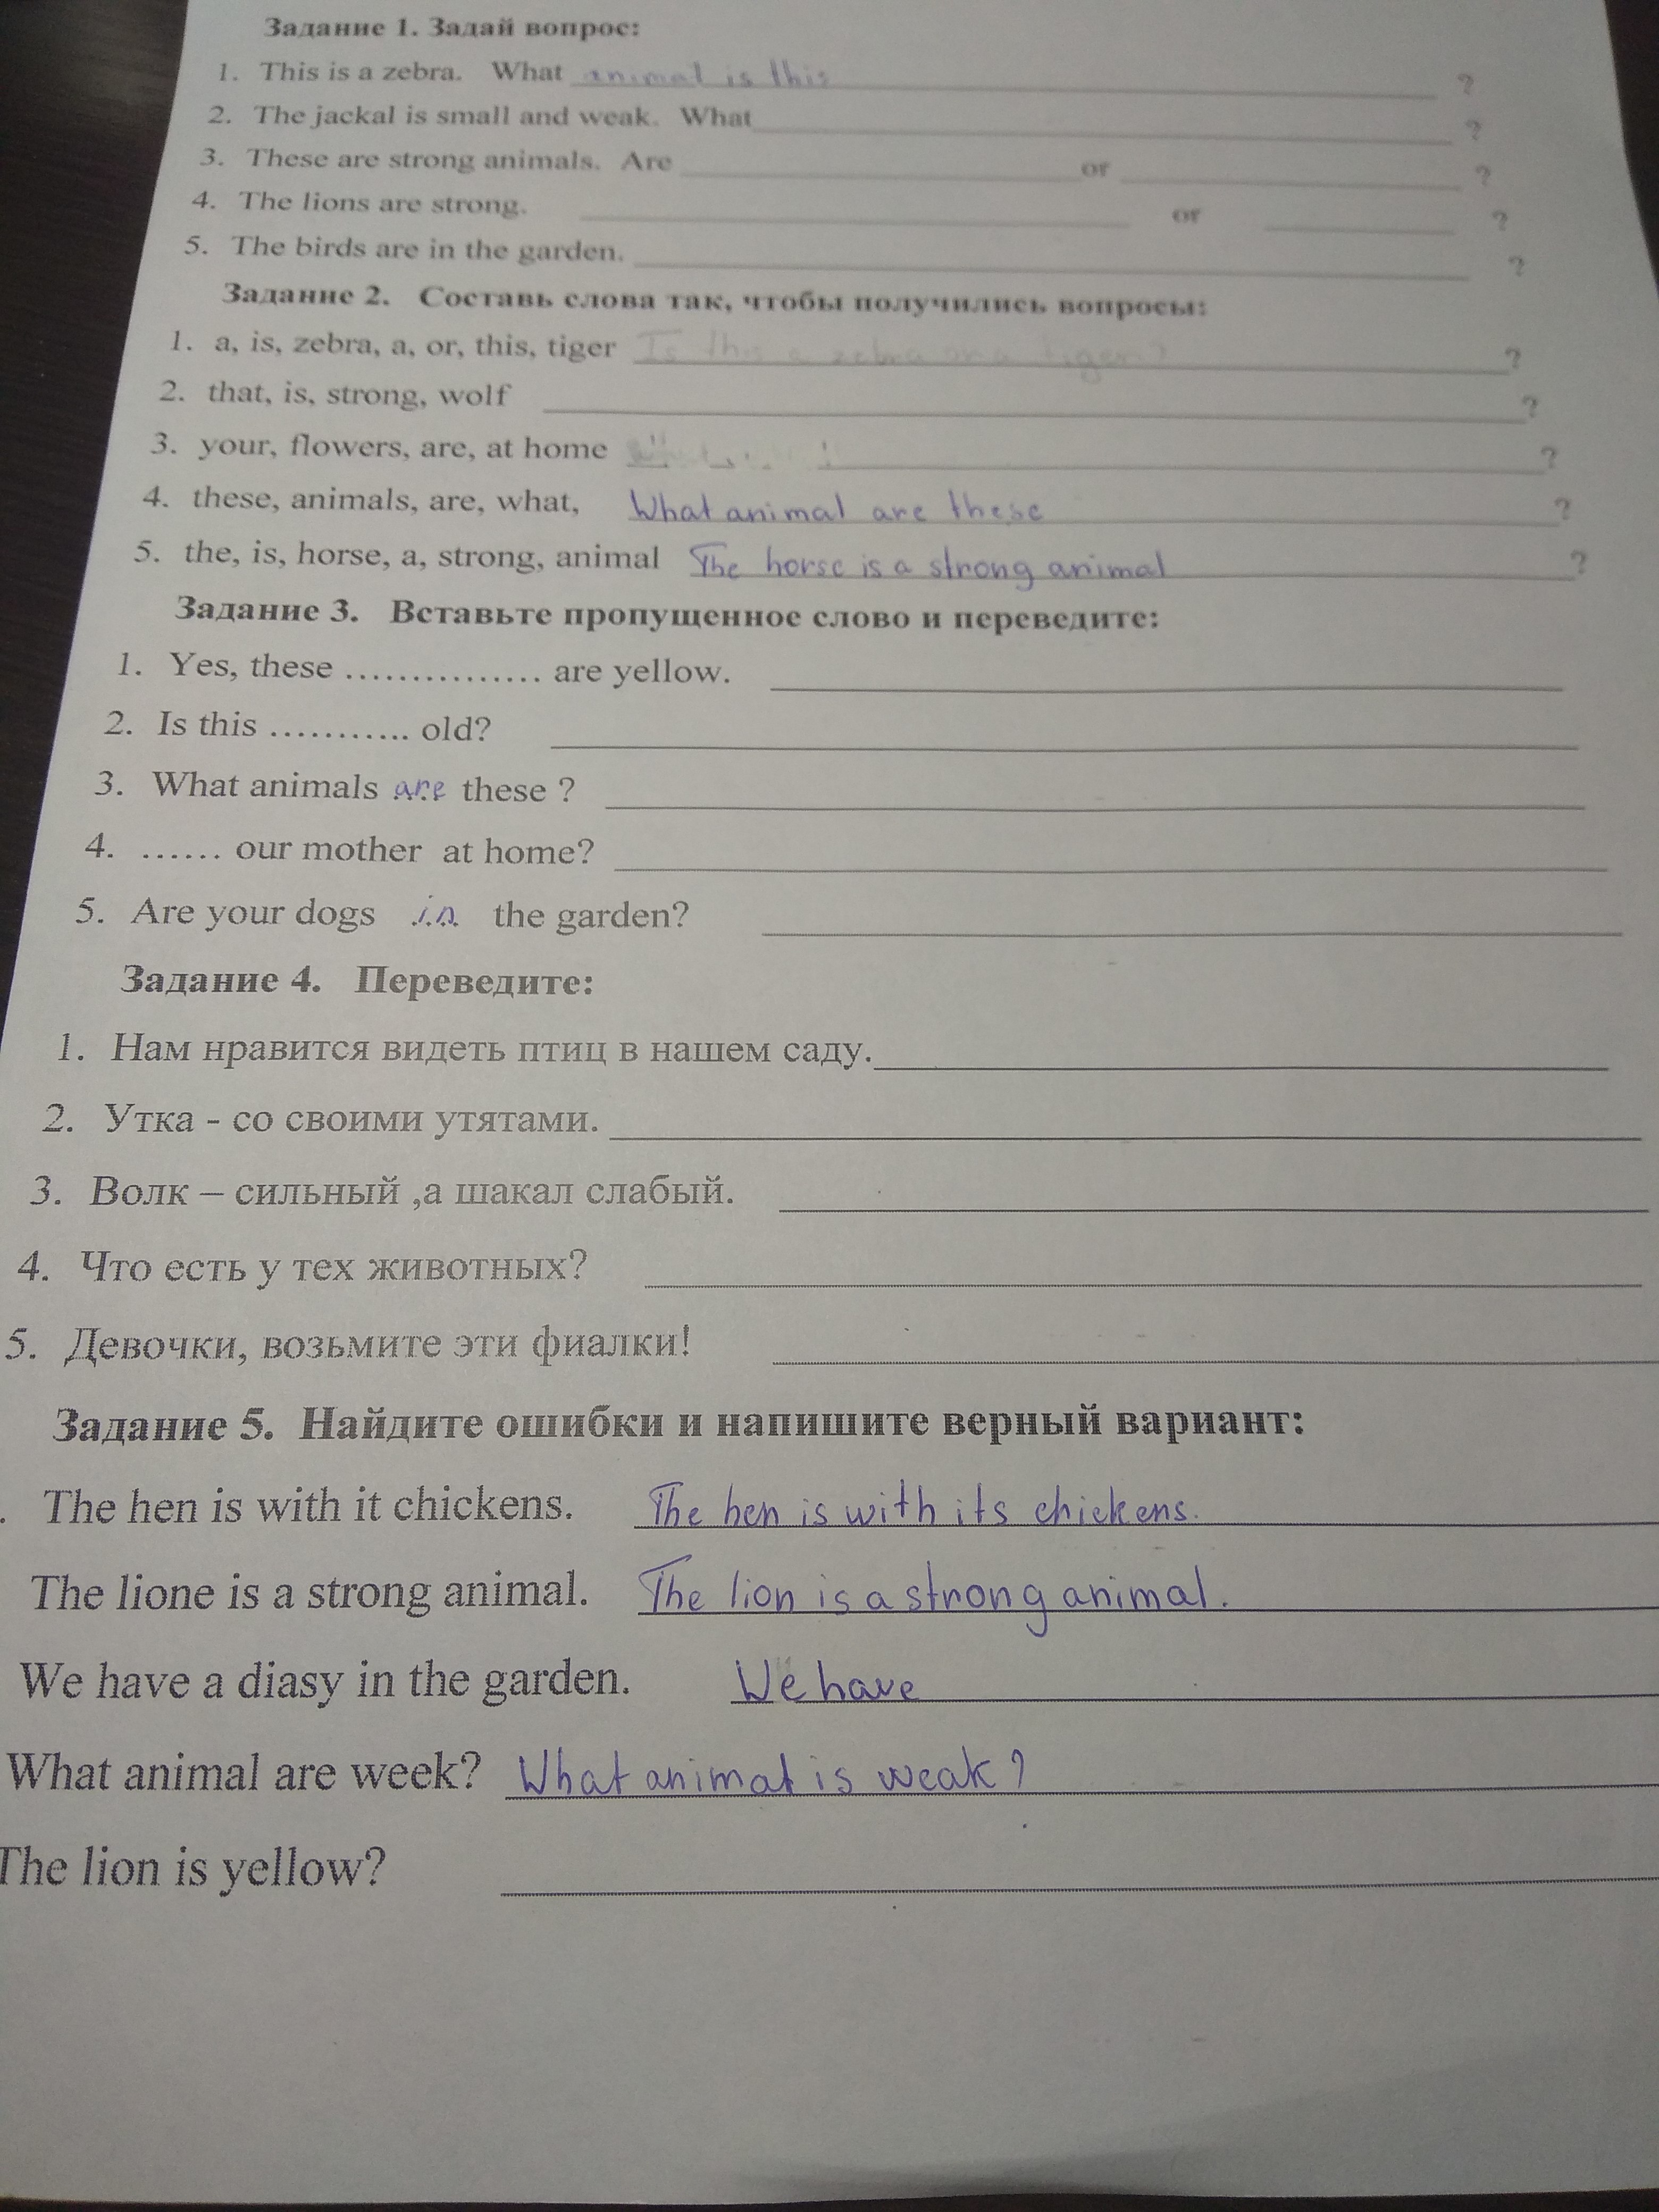 Задание 1. Задай вопрос:
1. This is a zebra. What animal is this ?
2. The jackal is small and weak. What ?
3. These are strong animals. Are or ?
4. The lions are strong. or ?
5. The birds are in the garden. ?
Задание 2. Составь слова так, чтобы получились вопросы:
1. a, is, zebra, a, or, this, tiger Is this a zebra or a tiger? ?
2. that, is, strong, wolf ?
3. your, flowers, are, at home ?
4. these, animals, are, what, What animal are these ?
5. the, is, horse, a, strong, animal The horse is a strong animal ?
Задание 3. Вставьте пропущенное слово и переведите:
1. Yes, these ............... are yellow.
2. Is this ........... old?
3. What animals are these ?
4. ...... our mother at home?
5. Are your dogs in the garden?
Задание 4. Переведите:
1. Нам нравится видеть птиц в нашем саду.
2. Утка - со своими утятами.
3. Волк – сильный ,а шакал слабый.
4. Что есть у тех животных?
5. Девочки, возьмите эти фиалки!
Задание 5. Найдите ошибки и напишите верный вариант:
. The hen is with it chickens. The hen is with its chickens.
The lione is a strong animal. The lion is a strong animal.
We have a diasy in the garden. We have
What animal are week? What animal is weak?
The lion is yellow?